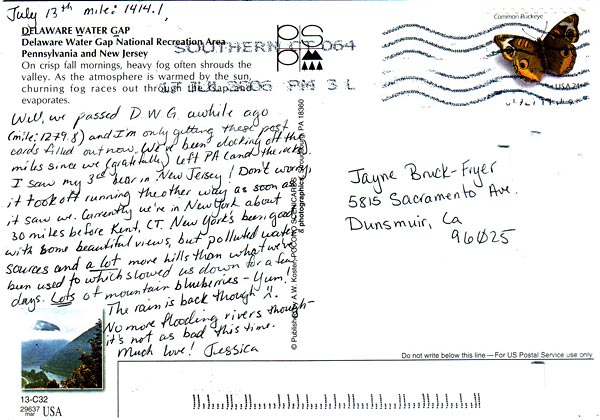 July 13th mile: 1414.1,
DELAWARE WATER GAP
Delaware Water Gap National Recreation Area
Pennsylvania and New Jersey
On crisp fall mornings, heavy fog often shrouds the
valley. As the atmosphere is warmed by the sun,
churning fog races out through the Gap and
evaporates.
Well, we passed D.W.G. awhile ago
(mile: 1279.8) and I'm only getting these post
cards filled out now. We've been clocking off the
miles since we (gratefully) left PA (and the rocks).
I saw my 3rd bear in New Jersey! Don't worry,
it took off running the other way as soon as
it saw we. Currently we're in New York about
30 miles before Kent, CT. New York's been good
with some beautiful views, but polluted water
sources and a lot more hills than what we've
been used to which slowed us down for a few
days. Lots of mountain blueberries - Yum!
The rain is back though
No more flooding rivers though-
it's not as bad this time.
Much love! Jessica
13-C32
29637
mar USA
PSPP
SOUTHERN CT 064
JUL 2006 PM 3 L
© Published by A.W. POCONO
& photographics PA 18360
Common Buckeye
USA 24
Jayne Bruck-Fryer
5815 Sacramento Ave.
Dunsmuir, Ca
96025
Do not write below this line — For US Postal Service use only